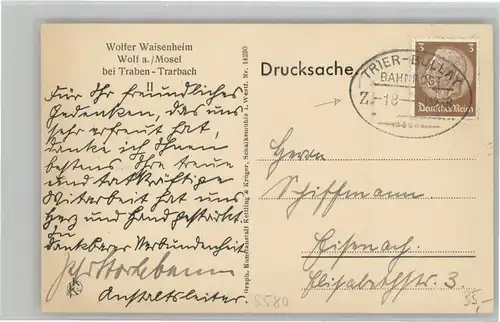 Wolfer Waisenheim
Wolf a./Mosel
bei Traben - Trarbach
II
Für Ihr freundliches
Gedenken, das uns
sehr erfreut hat,
danke ich Ihnen
bestens. Ihre treue
und tatkräftige
Mitarbeit hat uns
Herz und Hand gestärkt
In
dankbarer Verbundenheit
Anstaltsleiter.
Graph. Kunstanstalt Kettling & Krüger, Schalksmühle i. Westf. Nr. 14280
Drucksache
TRIER-BULLAY
BAHNPOST
Z.
18
3 3
Deutsches Reich
Herrn
Schiffmann.
Eisenach.
Elisabethstr. 3.
8580
35,-